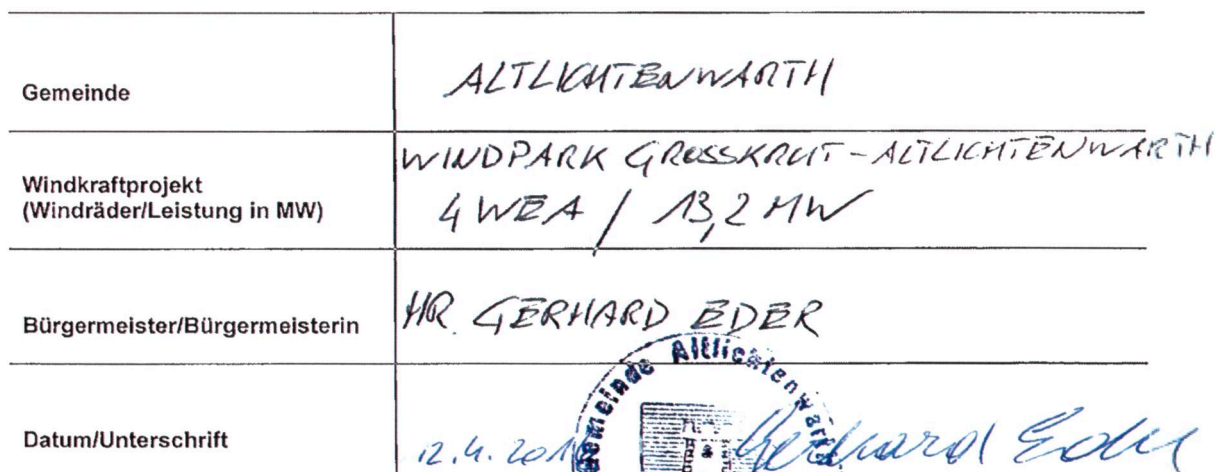 Gemeinde
ALTLICHTENWARTH
Windkraftprojekt
(Windräder/Leistung in MW)
WINDPARK GROSSKRUT-ALTLICHTENWARTH
4 WEA / 13,2 MW
Bürgermeister/Bürgermeisterin
HR. GERHARD EDER
Datum/Unterschrift
12.4.
Gemeinde Altlichtenwarth
Gerhard Eder